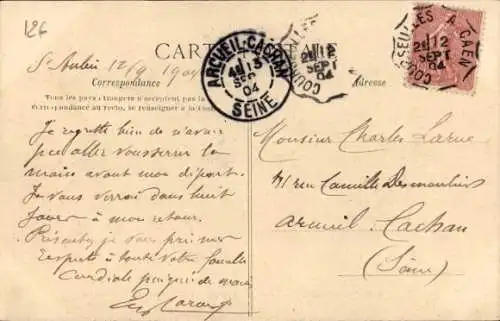 126
CARTE
St Aubin 12/9 1904
Correspondance
Adresse
Tous les pays étrangers n'acceptent pas la
correspondance au recto, se renseigner à la
ARCUEIL-CACHAN
13
SEP
04
SEINE
COURSEULLES A CAEN
12
SEPT
04
COURSEULLES A CAEN
12
SEPT
04
Je regrette bien de n'avoir
pu aller vous serrer la
main avant mon départ.
Je vous verrai dans huit
jours à mon retour.
Présentez je vous prie mes
respects à toute votre famille
Cordiale poignée de main
Monsieur Charles Larue
41 rue Camille Desmoulins
Arcueil Cachan
(Seine)